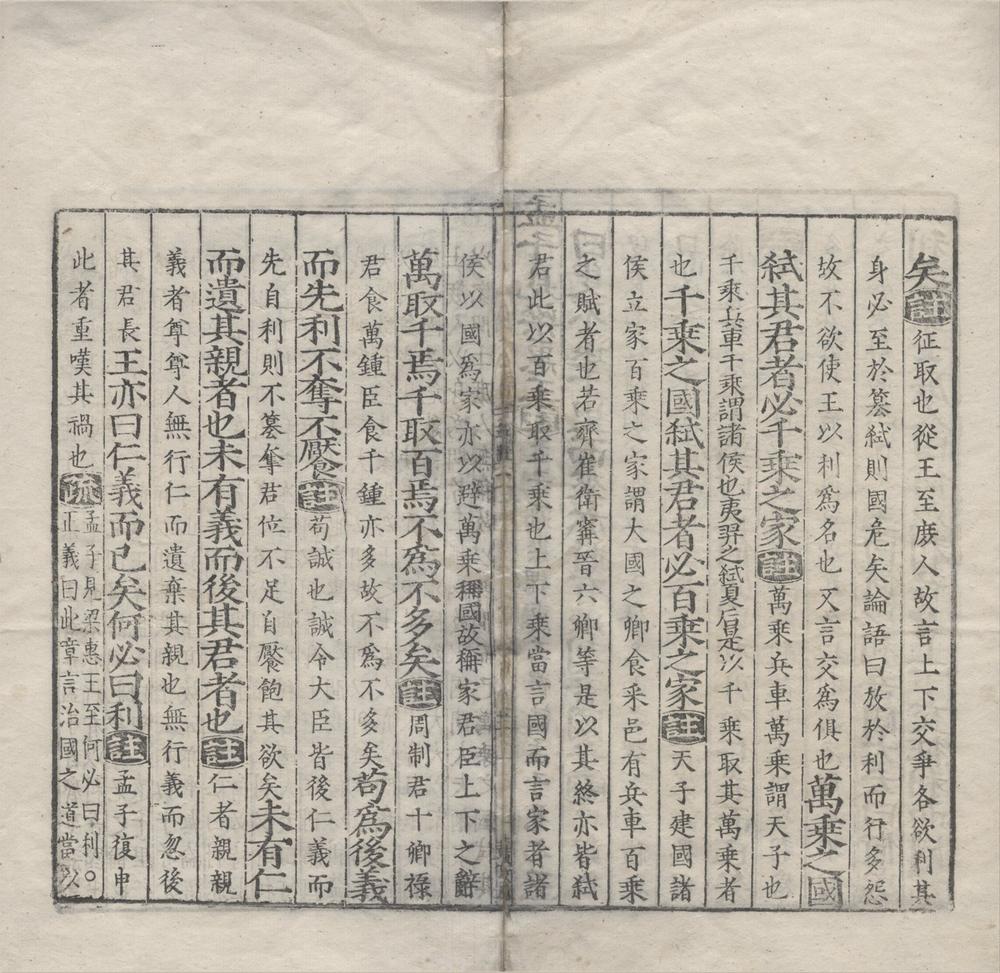 矣註征取也從王至庶人故言上下交爭各欲利其
身必至於篡弑則國危矣論語曰放於利而行多怨
故不欲使王以利爲名也又言交爲俱也萬乘之國
弑其君者必千乘之家註萬乘兵車萬乘謂天子也
千乘兵車千乘謂諸侯也夷羿之弑夏后是以千乘取其萬乘者
也千乘之國弑其君者必百乘之家註天子建國諸
侯立家百乘之家謂大國之卿食采邑有兵車百乘
之賦者也若齊崔衛甯晉六卿等是以其終亦皆弑
君此以百乘取千乘也上下乘當言國而言家者諸
侯以國爲家亦以避萬乘稱國故稱家君臣上下之辭
萬取千焉千取百焉不爲不多矣註周制君十卿祿
君食萬鍾臣食千鍾亦多故不爲不多矣苟爲後義
而先利不奪不饜註苟誠也誠令大臣皆後仁義而
先自利則不篡奪君位不足自饜飽其欲矣未有仁
而遺其親者也未有義而後其君者也註仁者親親
義者尊尊人無行仁而遺棄其親也無行義而忽後
其君長王亦曰仁義而已矣何必曰利註孟子復申
此者重嘆其禍也疏孟子見梁惠王至何必曰利○
正義曰此章言治國之道當以